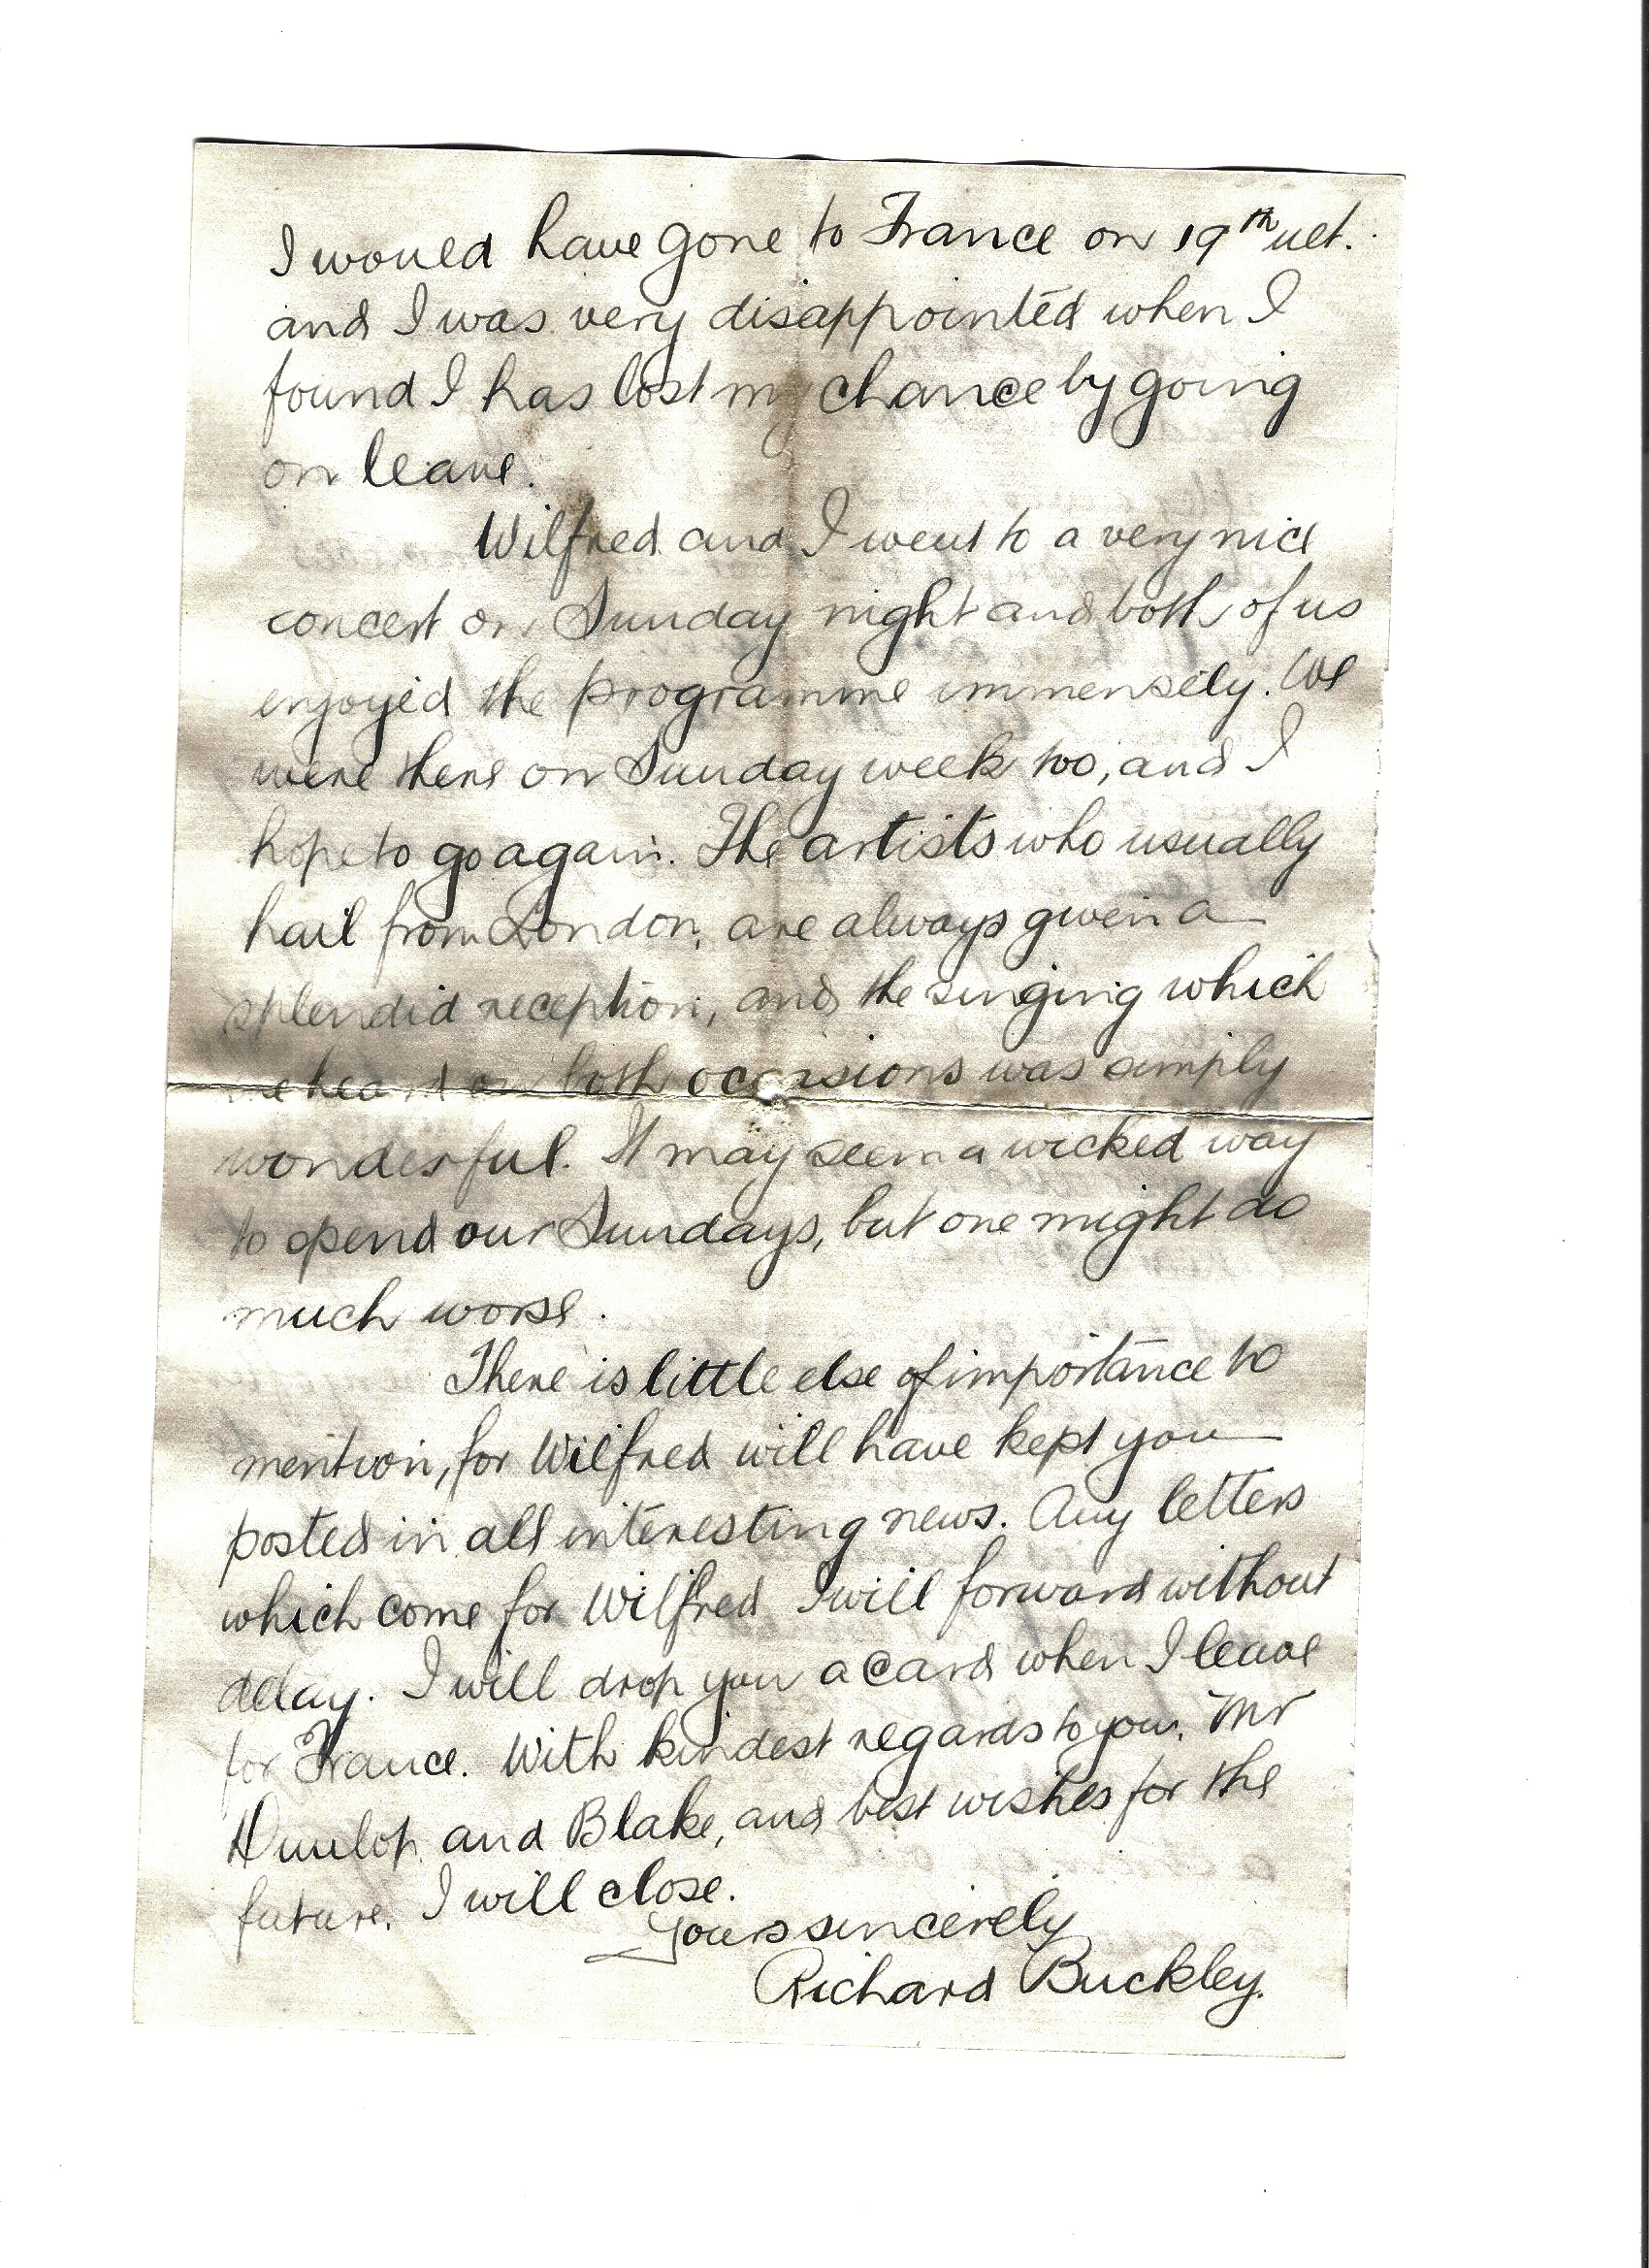 I would have gone to France on 19th ult.
and I was very disappointed when I
found I has lost my chance by going
on leave.
Wilfred and I went to a very nice
concert on Sunday night and both of us
enjoyed the programme immensely. We
were there on Sunday week too, and I
hope to go again. The artists who usually
hail from London, are always given a
splendid reception, and the singing which
we heard on both occasions was simply
wonderful. It may seem a wicked way
to spend our Sundays, but one might do
much worse.
There is little else of importance to
mention, for Wilfred will have kept you
posted in all interesting news. Any letters
which come for Wilfred I will forward without
delay. I will drop you a card when I leave
for France. With kindest regards to you, Mr
Dunlop and Blake, and best wishes for the
future, I will close.
Yours sincerely
Richard Buckley.